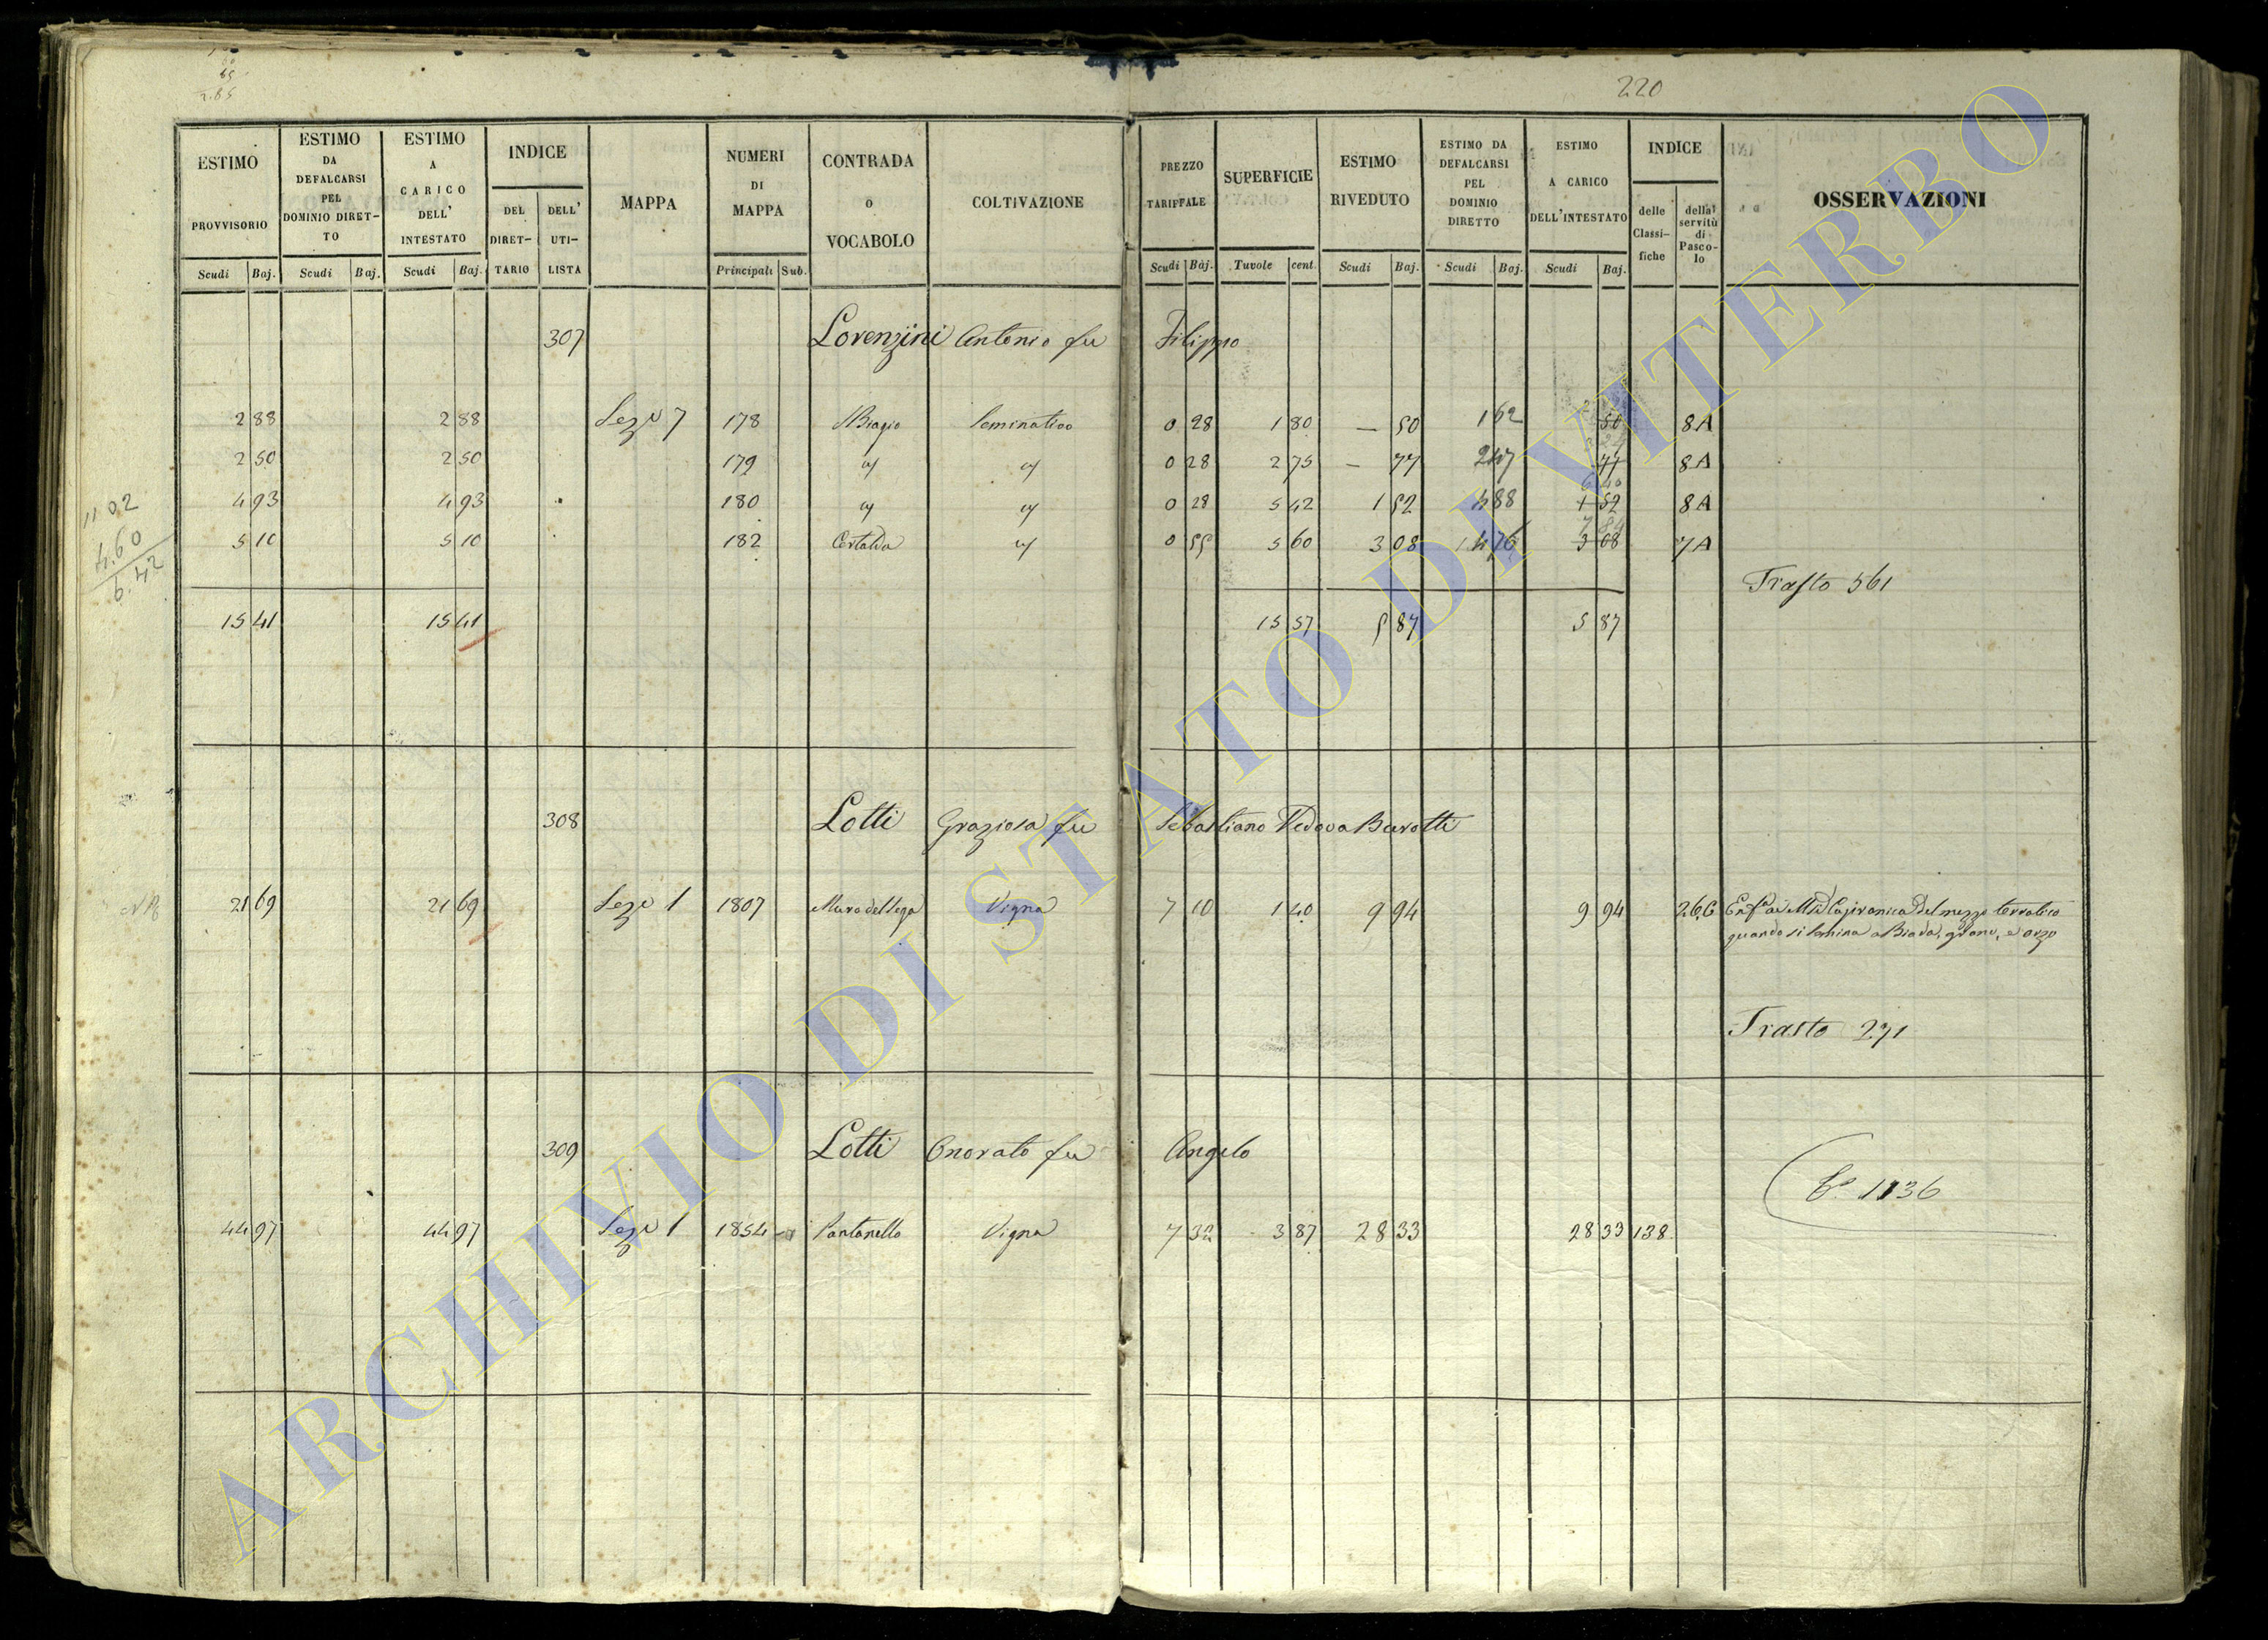 220
85
2.85
ESTIMO PROVVISORIO
ESTIMO DA DEFALCARSI PEL DOMINIO DIRET-TO
ESTIMO A CARICO DELL' INTESTATO
INDICE
DEL DIRET-TARIO
DELL' UTI-LISTA
MAPPA
NUMERI DI MAPPA
CONTRADA O VOCABOLO
COLTIVAZIONE
PREZZO TARIFFALE
SUPERFICIE
ESTIMO RIVEDUTO
ESTIMO DA DEFALCARSI PEL DOMINIO DIRETTO
ESTIMO A CARICO DELL'INTESTATO
INDICE
delle Classi-fiche
della servitù di Pasco-lo
OSSERVAZIONI
Scudi Baj. Scudi Baj. Scudi Baj. Principali Sub. Scudi Baj. Tavole cent. Scudi Baj. Scudi Baj. Scudi Baj.
307 Lorenzini Antonio fu Filippo
2 88 2 88 Sez.e 7 178 S Biagio Seminativo 0 28 1 80 — 50 1 62 50 8A
2 50 2 50 179 0 28 2 75 — 77 2 47 77 8A
4 93 4 93 180 0 28 5 42 1 52 4 88 1 52 8A
5 10 5 10 182 Certalda 0 55 5 60 3 08 4 76 3 08 7A
11 02
4.60
6.42
Trasto 561
15 41 15 41 15 57 5 87 5 87
308 Lotti Graziosa fu Sebastiano Vedova Burotti
21 69 21 69 Sez.e 1 1807 Muro del lega Vigna 7 10 1 40 9 94 9 94 26.C
quando si semina a Biada, grano, e orzo
Trasto 271
309 Lotti Onorato fu Angelo
1136
44 97 44 97 Sez.e 1 1854 Pantanello Vigna 7 32 3 87 28 33 28 33 138
ARCHIVIO DI STATO DI VITERBO